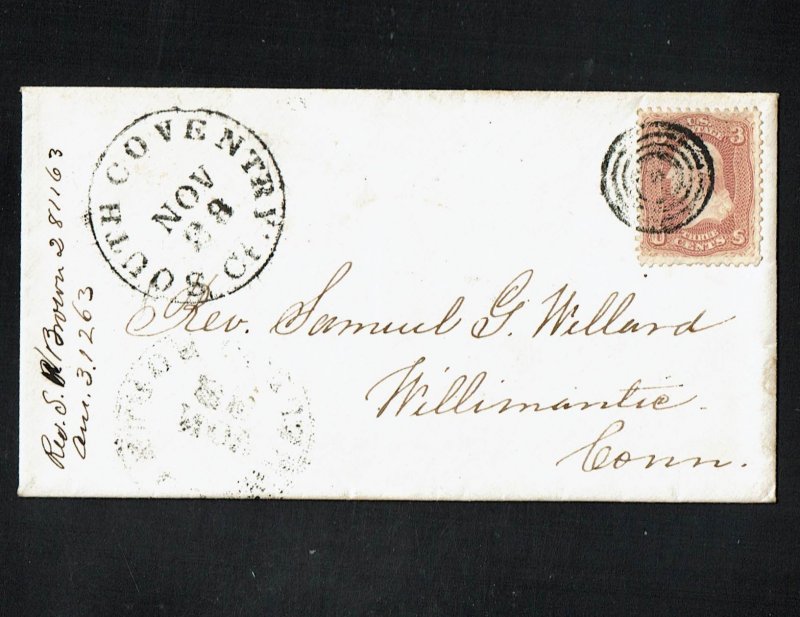 SOUTH COVENTRY. Ct.
NOV
28
U.S. POSTAGE 3
U THREE CENTS S
Rev. Samuel G. Willard
Willimantic.
Conn.
Rev. S. R Brown 281163
Ans. 3.1263